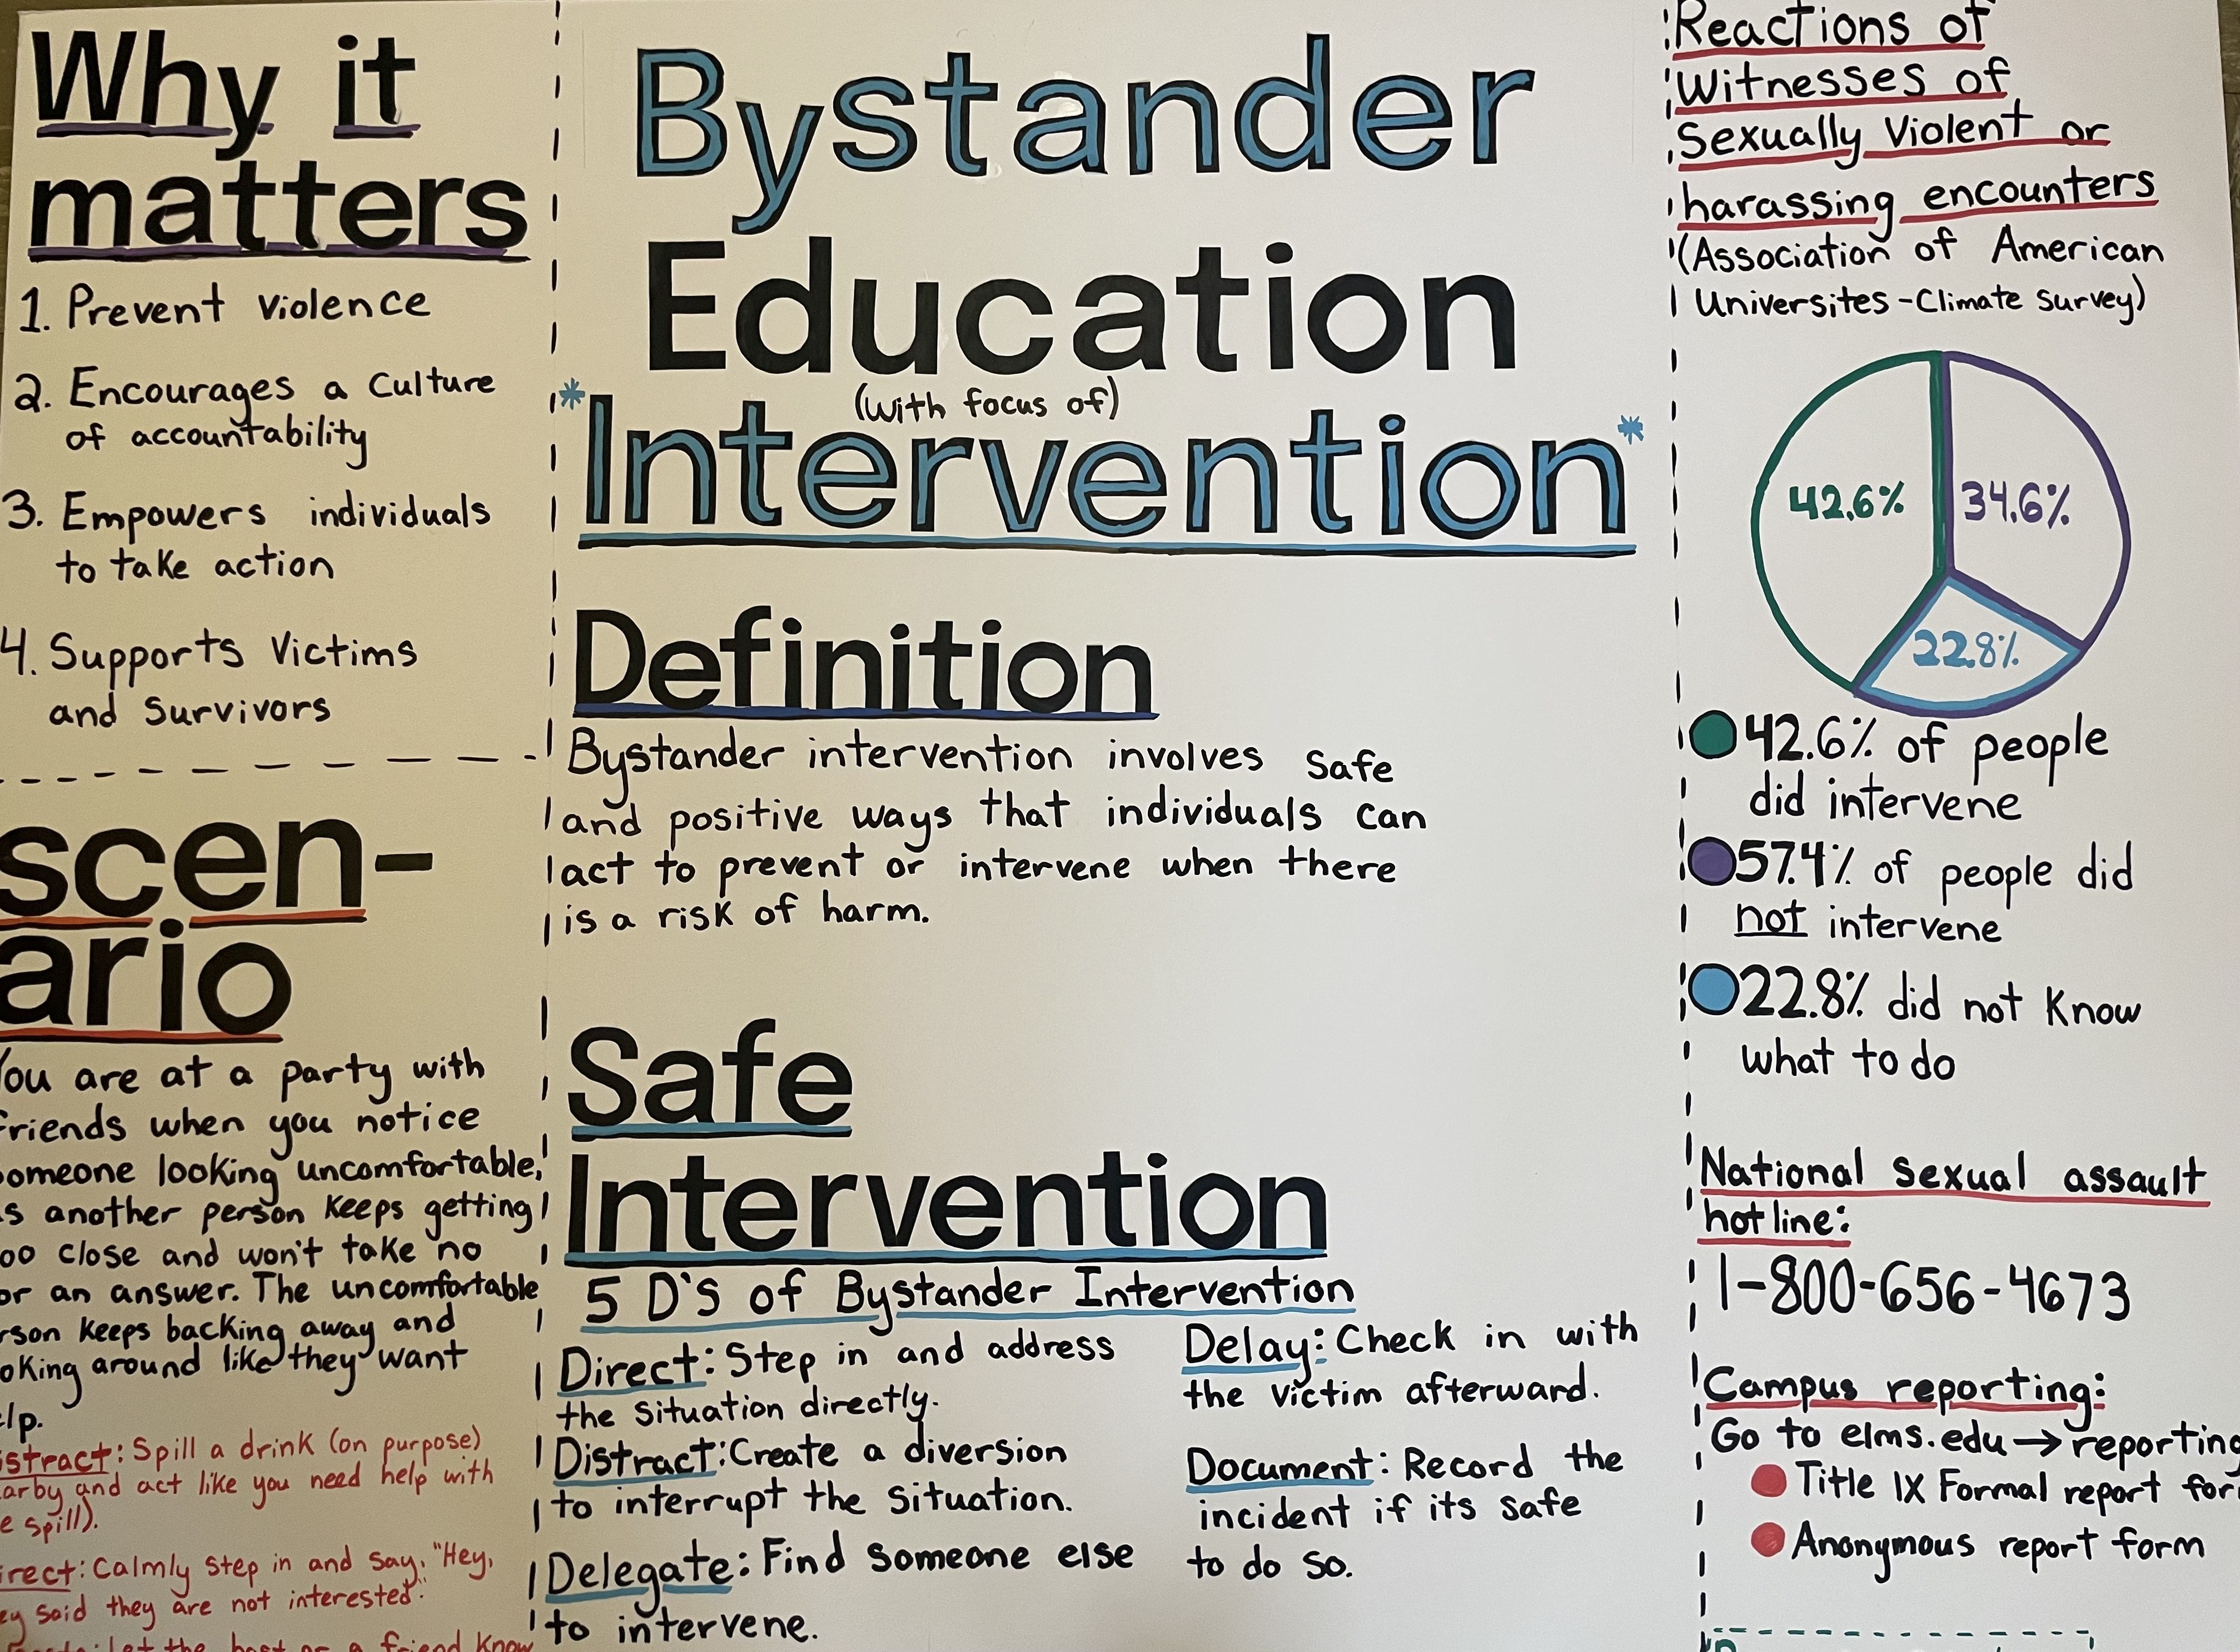 Why it
matters
1. Prevent violence
2. Encourages a culture
of accountability
3. Empowers individuals
to take action
4. Supports victims
and survivors
scen-
ario
You are at a party with
friends when you notice
someone looking uncomfortable,
as another person keeps getting
too close and won't take no
for an answer. The uncomfortable
rson keeps backing away and
oking around like they want
lp.
istract: Spill a drink (on purpose)
arby and act like you need help with
e spill).
irect: Calmly step in and say, "Hey,
ey said they are not interested."
let the host or a friend know
Bystander
Education
(with focus of)
*Intervention*
Definition
Bystander intervention involves safe
and positive ways that individuals can
act to prevent or intervene when there
is a risk of harm.
Safe
Intervention
5 D'S of Bystander Intervention
Direct: Step in and address
the situation directly.
Distract: Create a diversion
to interrupt the situation.
Delegate: Find someone else
to intervene.
Delay: Check in with
the victim afterward.
Document: Record the
incident if its safe
to do so.
Reactions of
Witnesses of
Sexually Violent or
harassing encounters
(Association of American
Universites - Climate survey)
42.6%
34.6%
22.8%
42.6% of people
did intervene
57.4% of people did
not intervene
22.8% did not know
what to do
National sexual assault
hotline:
1-800-656-4673
Campus reporting:
Go to elms.edu → reporting
Title IX Formal report for
Anonymous report form